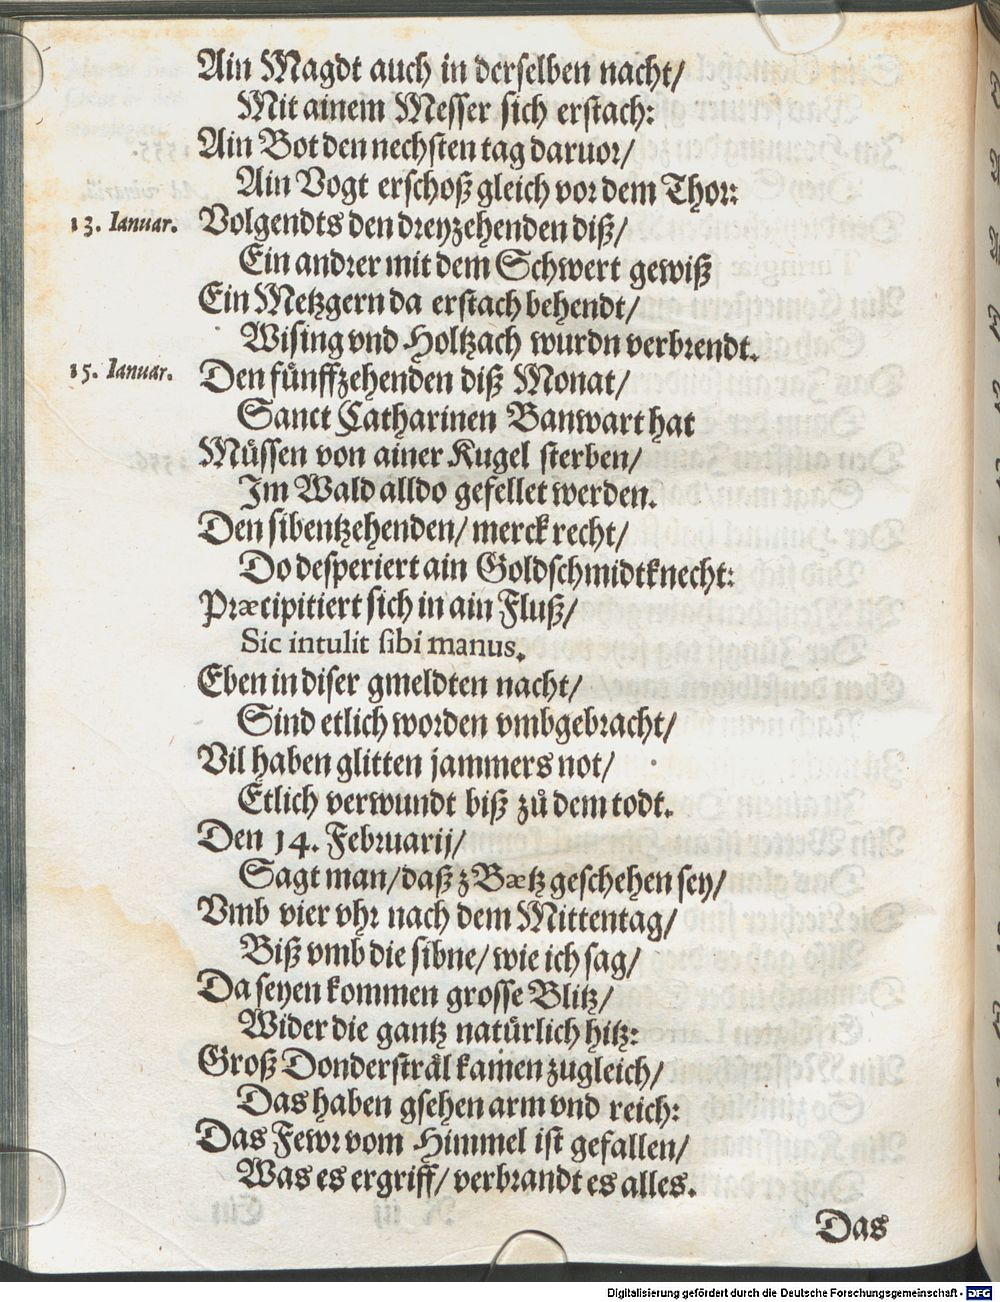 Ain Magdt auch in derselben nacht/
Mit ainem Messer sich erstach:
Ain Bot den nechsten tag daruor/
Ain Vogt erschoß gleich vor dem Thor:
13. Ianuar. Volgendts den dreyzehenden diß/
Ein andrer mit dem Schwert gewiß
Ein Metzgern da erstach behendt/
Wising vnd Holtzach wurdn verbrendt.
15. Ianuar. Den fünffzehenden diß Monat/
Sanct Catharinen Banwart hat
Müssen von ainer Kugel sterben/
Im Wald alldo gefellet werden.
Den sibentzehenden/ merck recht/
Do desperiert ain Goldschmidtknecht:
Præcipitiert sich in ain Fluß/
Sic intulit sibi manus.
Eben in diser gmeldten nacht/
Sind etlich worden vmbgebracht/
Vil haben glitten jammers not/
Etlich verwundt biß zů dem todt.
Den 14. Februarij/
Sagt man/ daß z Bætz geschehen sey/
Vmb vier vhr nach dem Mittentag/
Biß vmb die sibne/ wie ich sag/
Da seyen kommen grosse Blitz/
Wider die gantz natürlich hitz:
Groß Dondersträl kamen zugleich/
Das haben gsehen arm vnd reich:
Das Fewr vom Himmel ist gefallen/
Was es ergriff/ verbrandt es alles.
Das
Digitalisierung gefördert durch die Deutsche Forschungsgemeinschaft - DFG